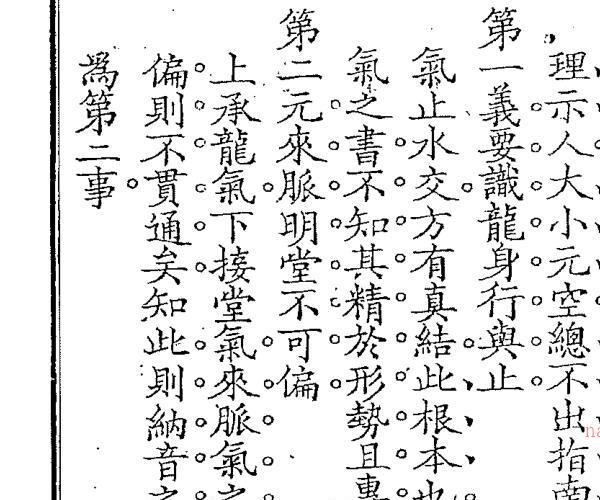 理示人大小元空總不出指南
第一義要識龍身行與止
氣止水交方有真結此根本也
氣之書不知其精於形勢且專
第二元來脈明堂不可偏
上承龍氣下接堂氣來脈氣之
偏則不貫通矣知此則納音之
為第二事